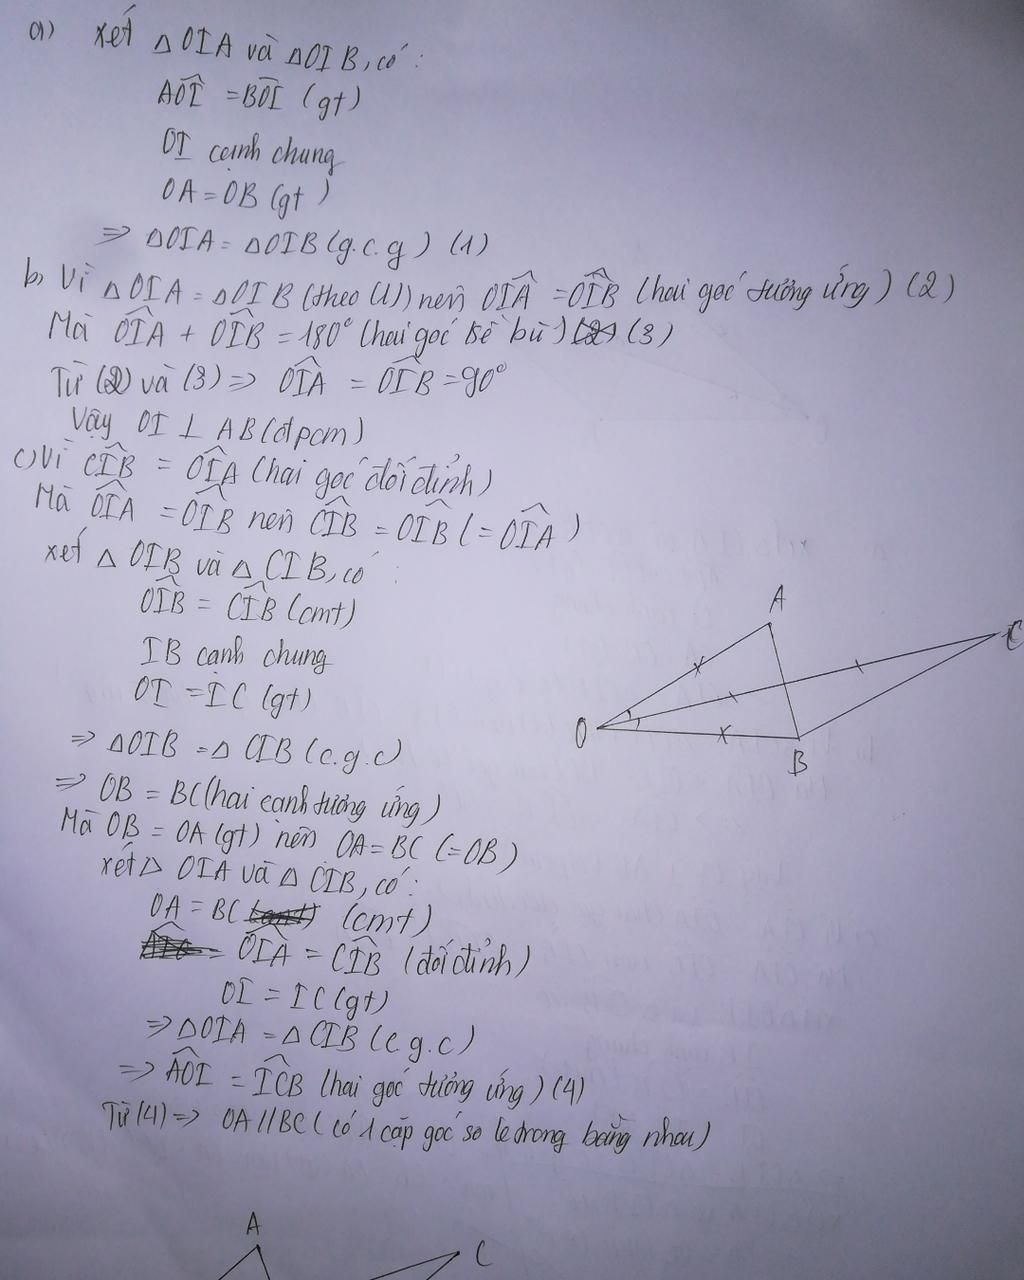 a) xét △OIA và △OIB, có:
AÔI = BÔI (gt)
OI cạnh chung
OA = OB (gt)
=> △OIA = △OIB (g.c.g) (1)
b, Vì △OIA = △OIB (theo (1)) nên OÎA = OÎB (hai góc tương ứng) (2)
Mà OÎA + OÎB = 180° (hai góc kề bù) (3)
Từ (2) và (3) => OÎA = OÎB = 90°
Vậy OI ⊥ AB (đpcm)
c) Vì CÎB = OÎA (hai góc đối đỉnh)
Mà OÎA = OÎB nên CÎB = OÎB (= OÎA)
xét △ OIB và △ CIB, có:
OÎB = CÎB (cmt)
IB cạnh chung
OI = IC (gt)
=> △OIB = △ CIB (c.g.c)
=> OB = BC (hai cạnh tương ứng)
Mà OB = OA (gt) nên OA = BC (= OB)
xét △ OIA và △ CIB, có:
OA = BC (cmt)
OÎA = CÎB (đối đỉnh)
OI = IC (gt)
=> △OIA = △ CIB (c.g.c)
=> AÔI = IĈB (hai góc tương ứng) (4)
Từ (4) => OA // BC (có 1 cặp góc so le trong bằng nhau)
A
C
O
B
A
C